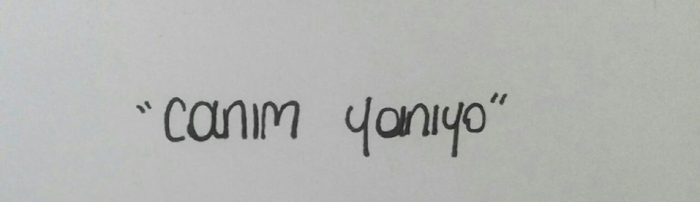 "canım yanıyo"